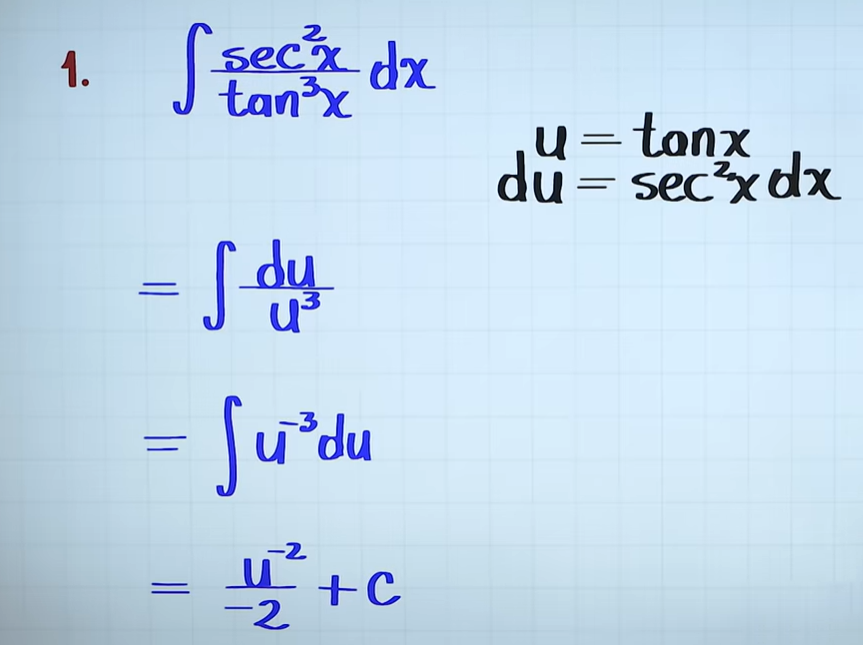 1. ∫ sec²x / tan³x dx
u = tanx
du = sec²x dx
= ∫ du / u³
= ∫ u⁻³ du
= u⁻² / -2 + c